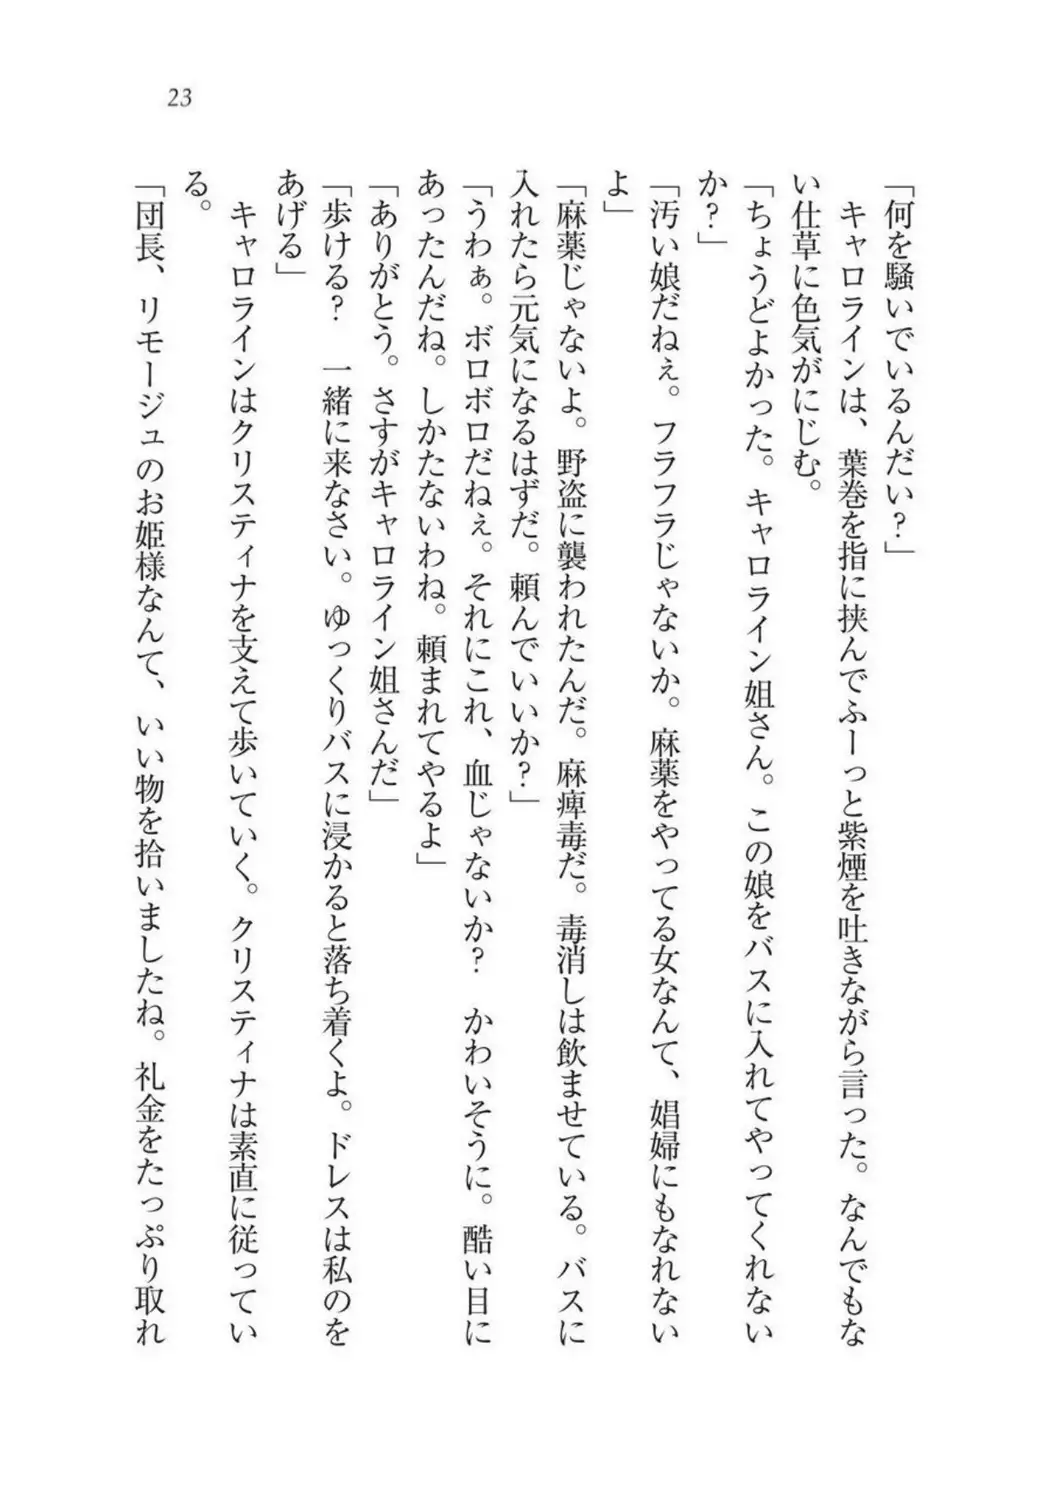 23
「何を騒いでいるんだい？」
　キャロラインは、葉巻を指に挟んでふーっと紫煙を吐きながら言った。なんでもな
い仕草に色気がにじむ。
「ちょうどよかった。キャロライン姐さん。この娘をバスに入れてやってくれない
か？」
「汚い娘だねぇ。フラフラじゃないか。麻薬をやってる女なんて、娼婦にもなれない
よ」
「麻薬じゃないよ。野盗に襲われたんだ。麻痺毒だ。毒消しは飲ませている。バスに
入れたら元気になるはずだ。頼んでいいか？」
「うわぁ。ボロボロだねぇ。それにこれ、血じゃないか？　かわいそうに。酷い目に
あったんだね。しかたないわね。頼まれてやるよ」
「ありがとう。さすがキャロライン姐さんだ」
「歩ける？　一緒に来なさい。ゆっくりバスに浸かると落ち着くよ。ドレスは私のを
あげる」
　キャロラインはクリスティナを支えて歩いていく。クリスティナは素直に従ってい
る。
「団長、リモージュのお姫様なんて、いい物を拾いましたね。礼金をたっぷり取れ